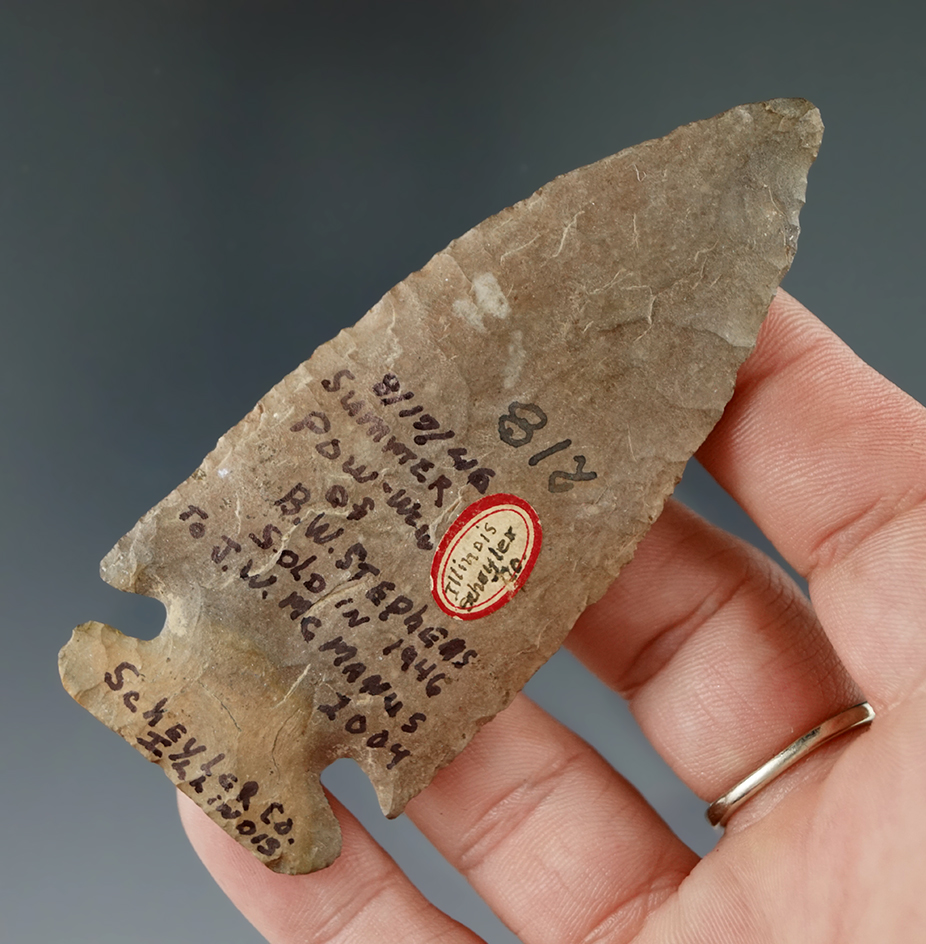 8/17/46
SUMMER
POW-WOW
OF
B.W. STEPHENS
SOLD IN 1946
TO J.W. MCMANUS
2004
Illinois
Schuyler
Co
ScheyLER CO.
ILLINOIS